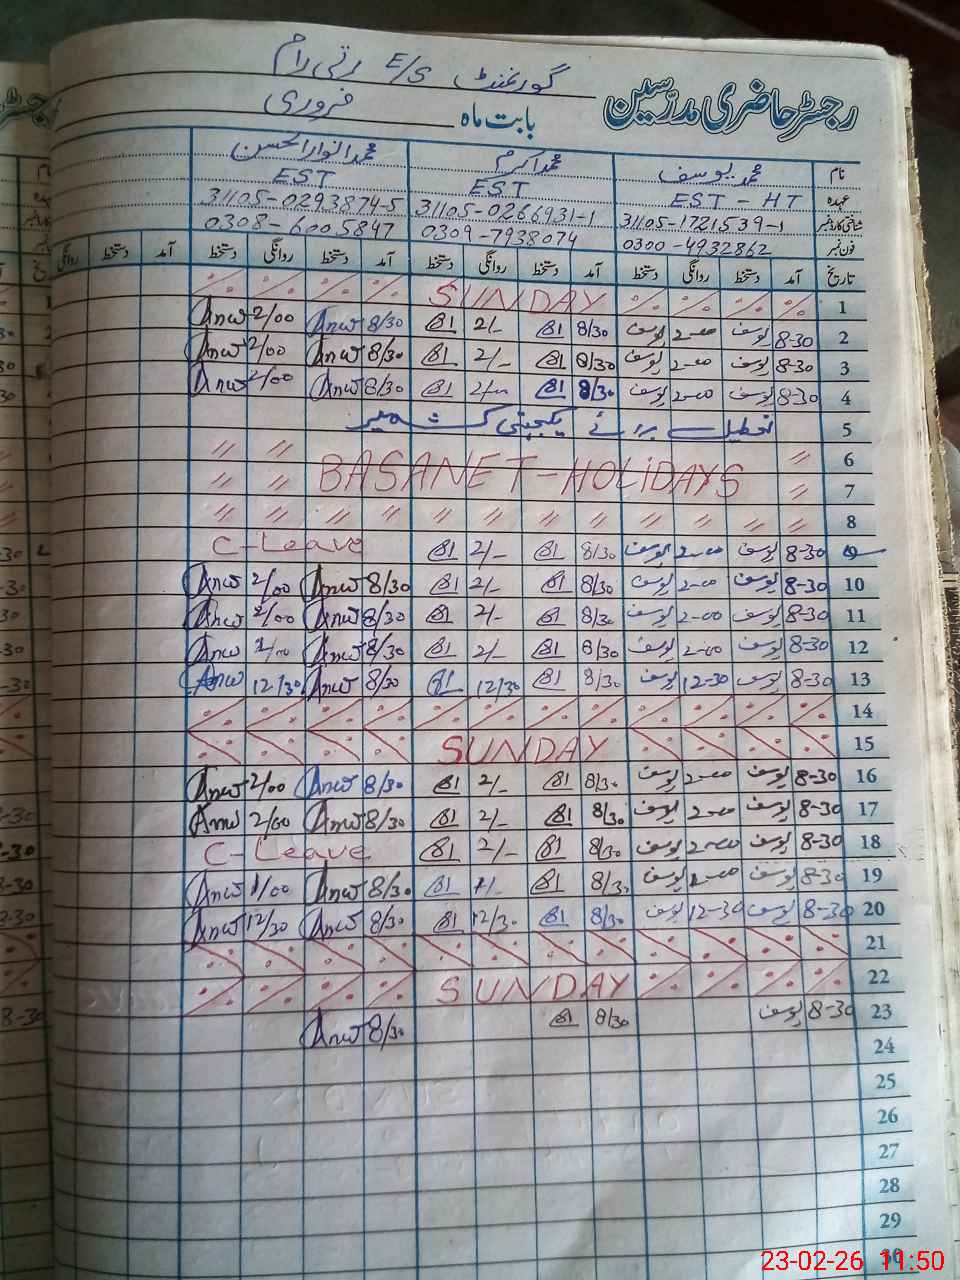 گورنمنٹ E/S رتی رام
رجسٹر حاضری مدرسین
بابت ماہ فروری
نام محمد یوسف محمد اکرم محمد انوار الحسن
عہدہ EST - HT EST EST
شناختی کارڈ نمبر 31105-1721539-1 31105-0266931-1 31105-0293874-5
فون نمبر 0300-4932862 0309-7938074 0308-6005847
تاریخ آمد دستخط روانگی دستخط آمد دستخط روانگی دستخط آمد دستخط روانگی دستخط آمد دستخط روانگی
1 SUNDAY
2 8-30 یوسف 2-00 یوسف 8/30 2/- 8/30 Anw 2/00 Anw
3 8-30 یوسف 2-00 یوسف 8/30 2/- 8/30 Anw 2/00 Anw
4 8-30 یوسف 2-00 یوسف 8/30 2/- 8/30 Anw 2/00 Anw
5 تعطیل برائے یکجہتی کشمیر
6 〃 〃 〃
7 〃 BASANET-HOLIDAYS 〃 〃
8 〃 〃 〃 〃 〃 〃 〃 〃 〃 〃 〃 〃
9 8-30 یوسف 2-00 یوسف 8/30 2/- C-Leave
10 8-30 یوسف 2-00 یوسف 8/30 2/- 8/30 Anw 2/00 Anw
11 8-30 یوسف 2-00 یوسف 8/30 2/- 8/30 Anw 2/00 Anw
12 8-30 یوسف 2-00 یوسف 8/30 2/- 8/30 Anw Anw
13 8-30 یوسف 12-30 یوسف 8/30 12/30 8/30 Anw 12/30 Anw
14
15 SUNDAY
16 8-30 یوسف 2-00 یوسف 8/30 2/- 8/30 Anw 2/00 Anw
17 8-30 یوسف 2-00 یوسف 8/30 2/- 8/30 Anw 2/00 Anw
18 8-30 یوسف 2-00 یوسف 8/30 2/- C-Leave
19 8-30 یوسف 1-00 یوسف 8/30 1/- 8/30 Anw 1/00 Anw
20 8-30 یوسف 12-30 یوسف 8/30 12/30 8/30 Anw 12/30 Anw
21
22 SUNDAY
23 8-30 یوسف 8/30 8/30 Anw
24
25
26
27
28
29
30
23-02-26 11:50